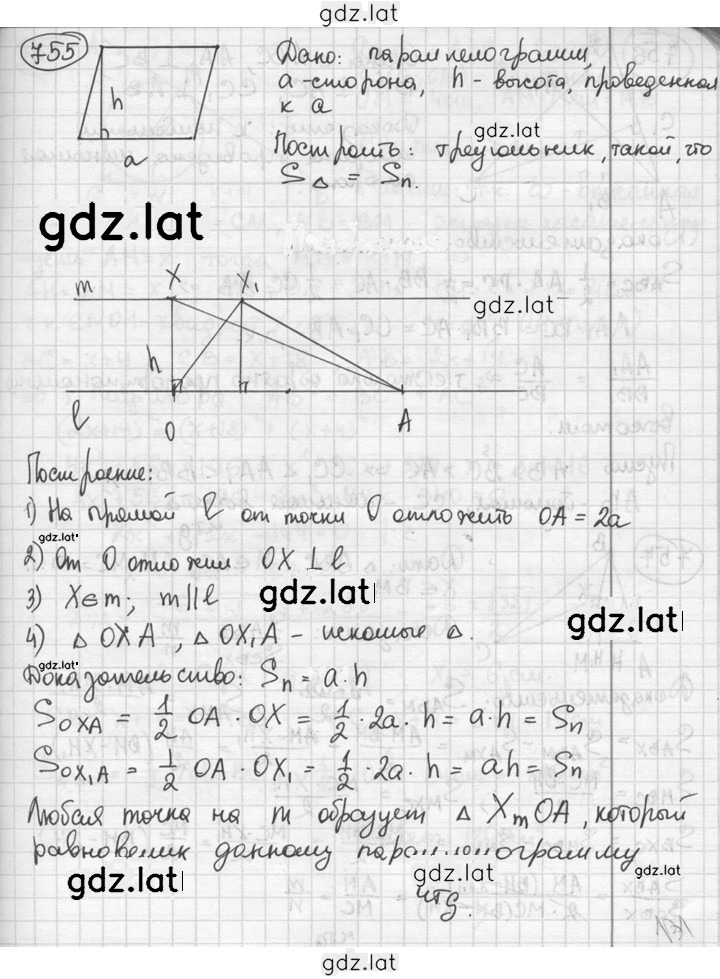 gdz.lat
755
h
a
Дано: параллелограмм,
a-сторона, h - высота, проведенная
к a
gdz.lat
Построить: треугольник, такой, что
S△ = Sп.
gdz.lat
m X X₁
gdz.lat
h
l O A
Построение:
1) На прямой l от точки O отложить OA = 2a
gdz.lat
2) От O отложим OX ⊥ l
3) X∈m; m || l
gdz.lat
gdz.lat
4) △ OXA, △ OX₁A - искомые △.
gdz.lat
Доказательство: Sп = a·h
S OXA = 1/2 OA · OX = 1/2 · 2a · h = a·h = Sп
S OX₁A = 1/2 OA · OX₁ = 1/2 · 2a · h = ah = Sп
Любая точка на m образует △ XmOA, который
равновелик данному параллелограмму
gdz.lat
gdz.lat
gdz.lat
чтд.
gdz.lat